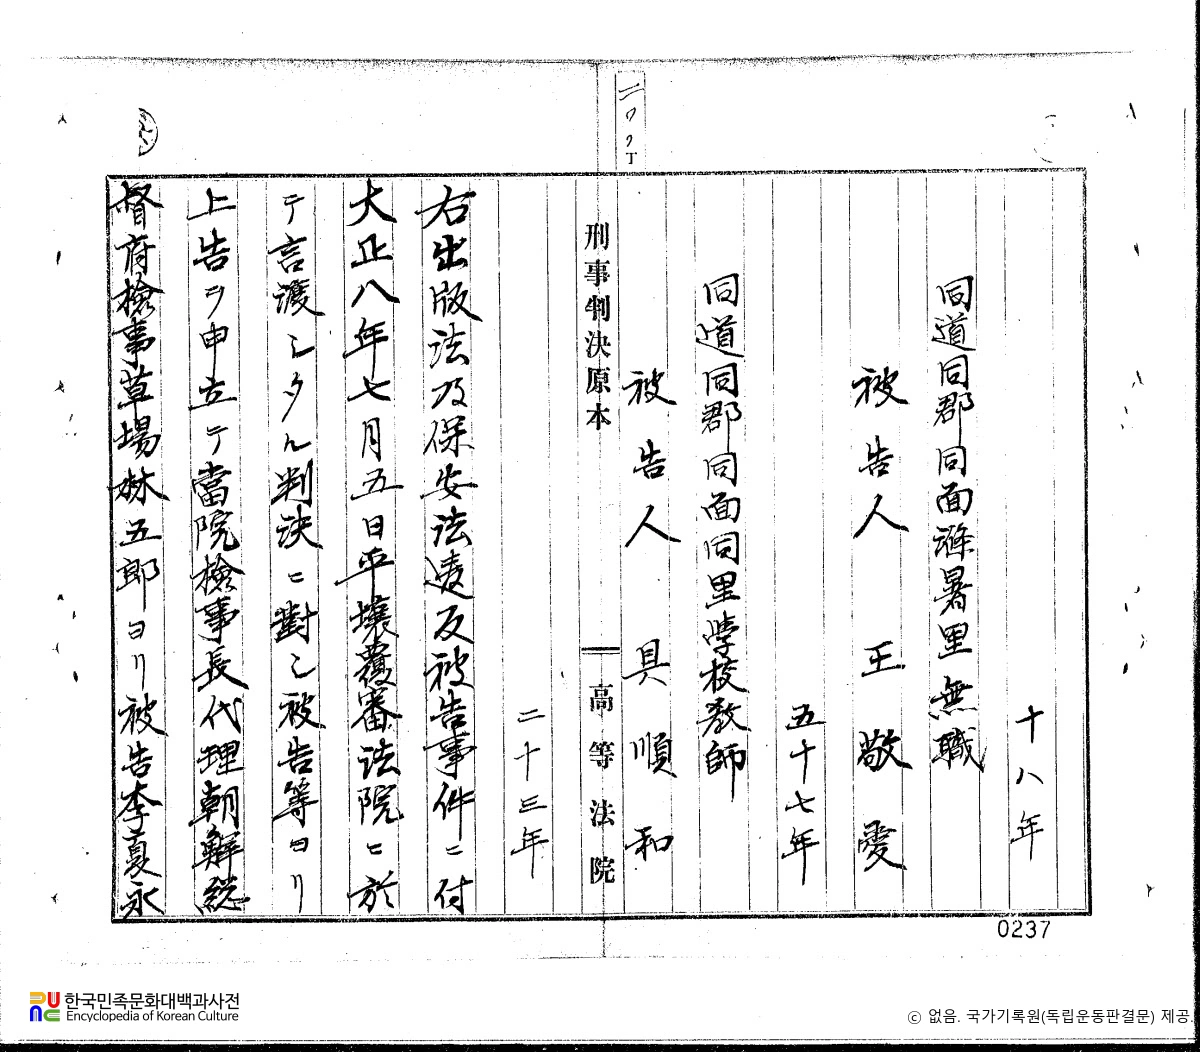 十八年
同道同郡同面滌暑里無職
被告人王敬愛
五十七年
同道同郡同面同里學校教師
被告人具順和
刑事判決原本
高等法院
二十三年
右出版法及保安法違反被告事件ニ付
大正八年七月五日平壤覆審法院ニ於
テ言渡シタル判決ニ對シ被告等ヨリ
上告ヲ申立テ當院檢事長代理朝鮮総
督府檢事草場林五郎ヨリ被告李夏永
0237
한국민족문화대백과사전
Encyclopedia of Korean Culture
ⓒ 없음. 국가기록원(독립운동판결문) 제공.